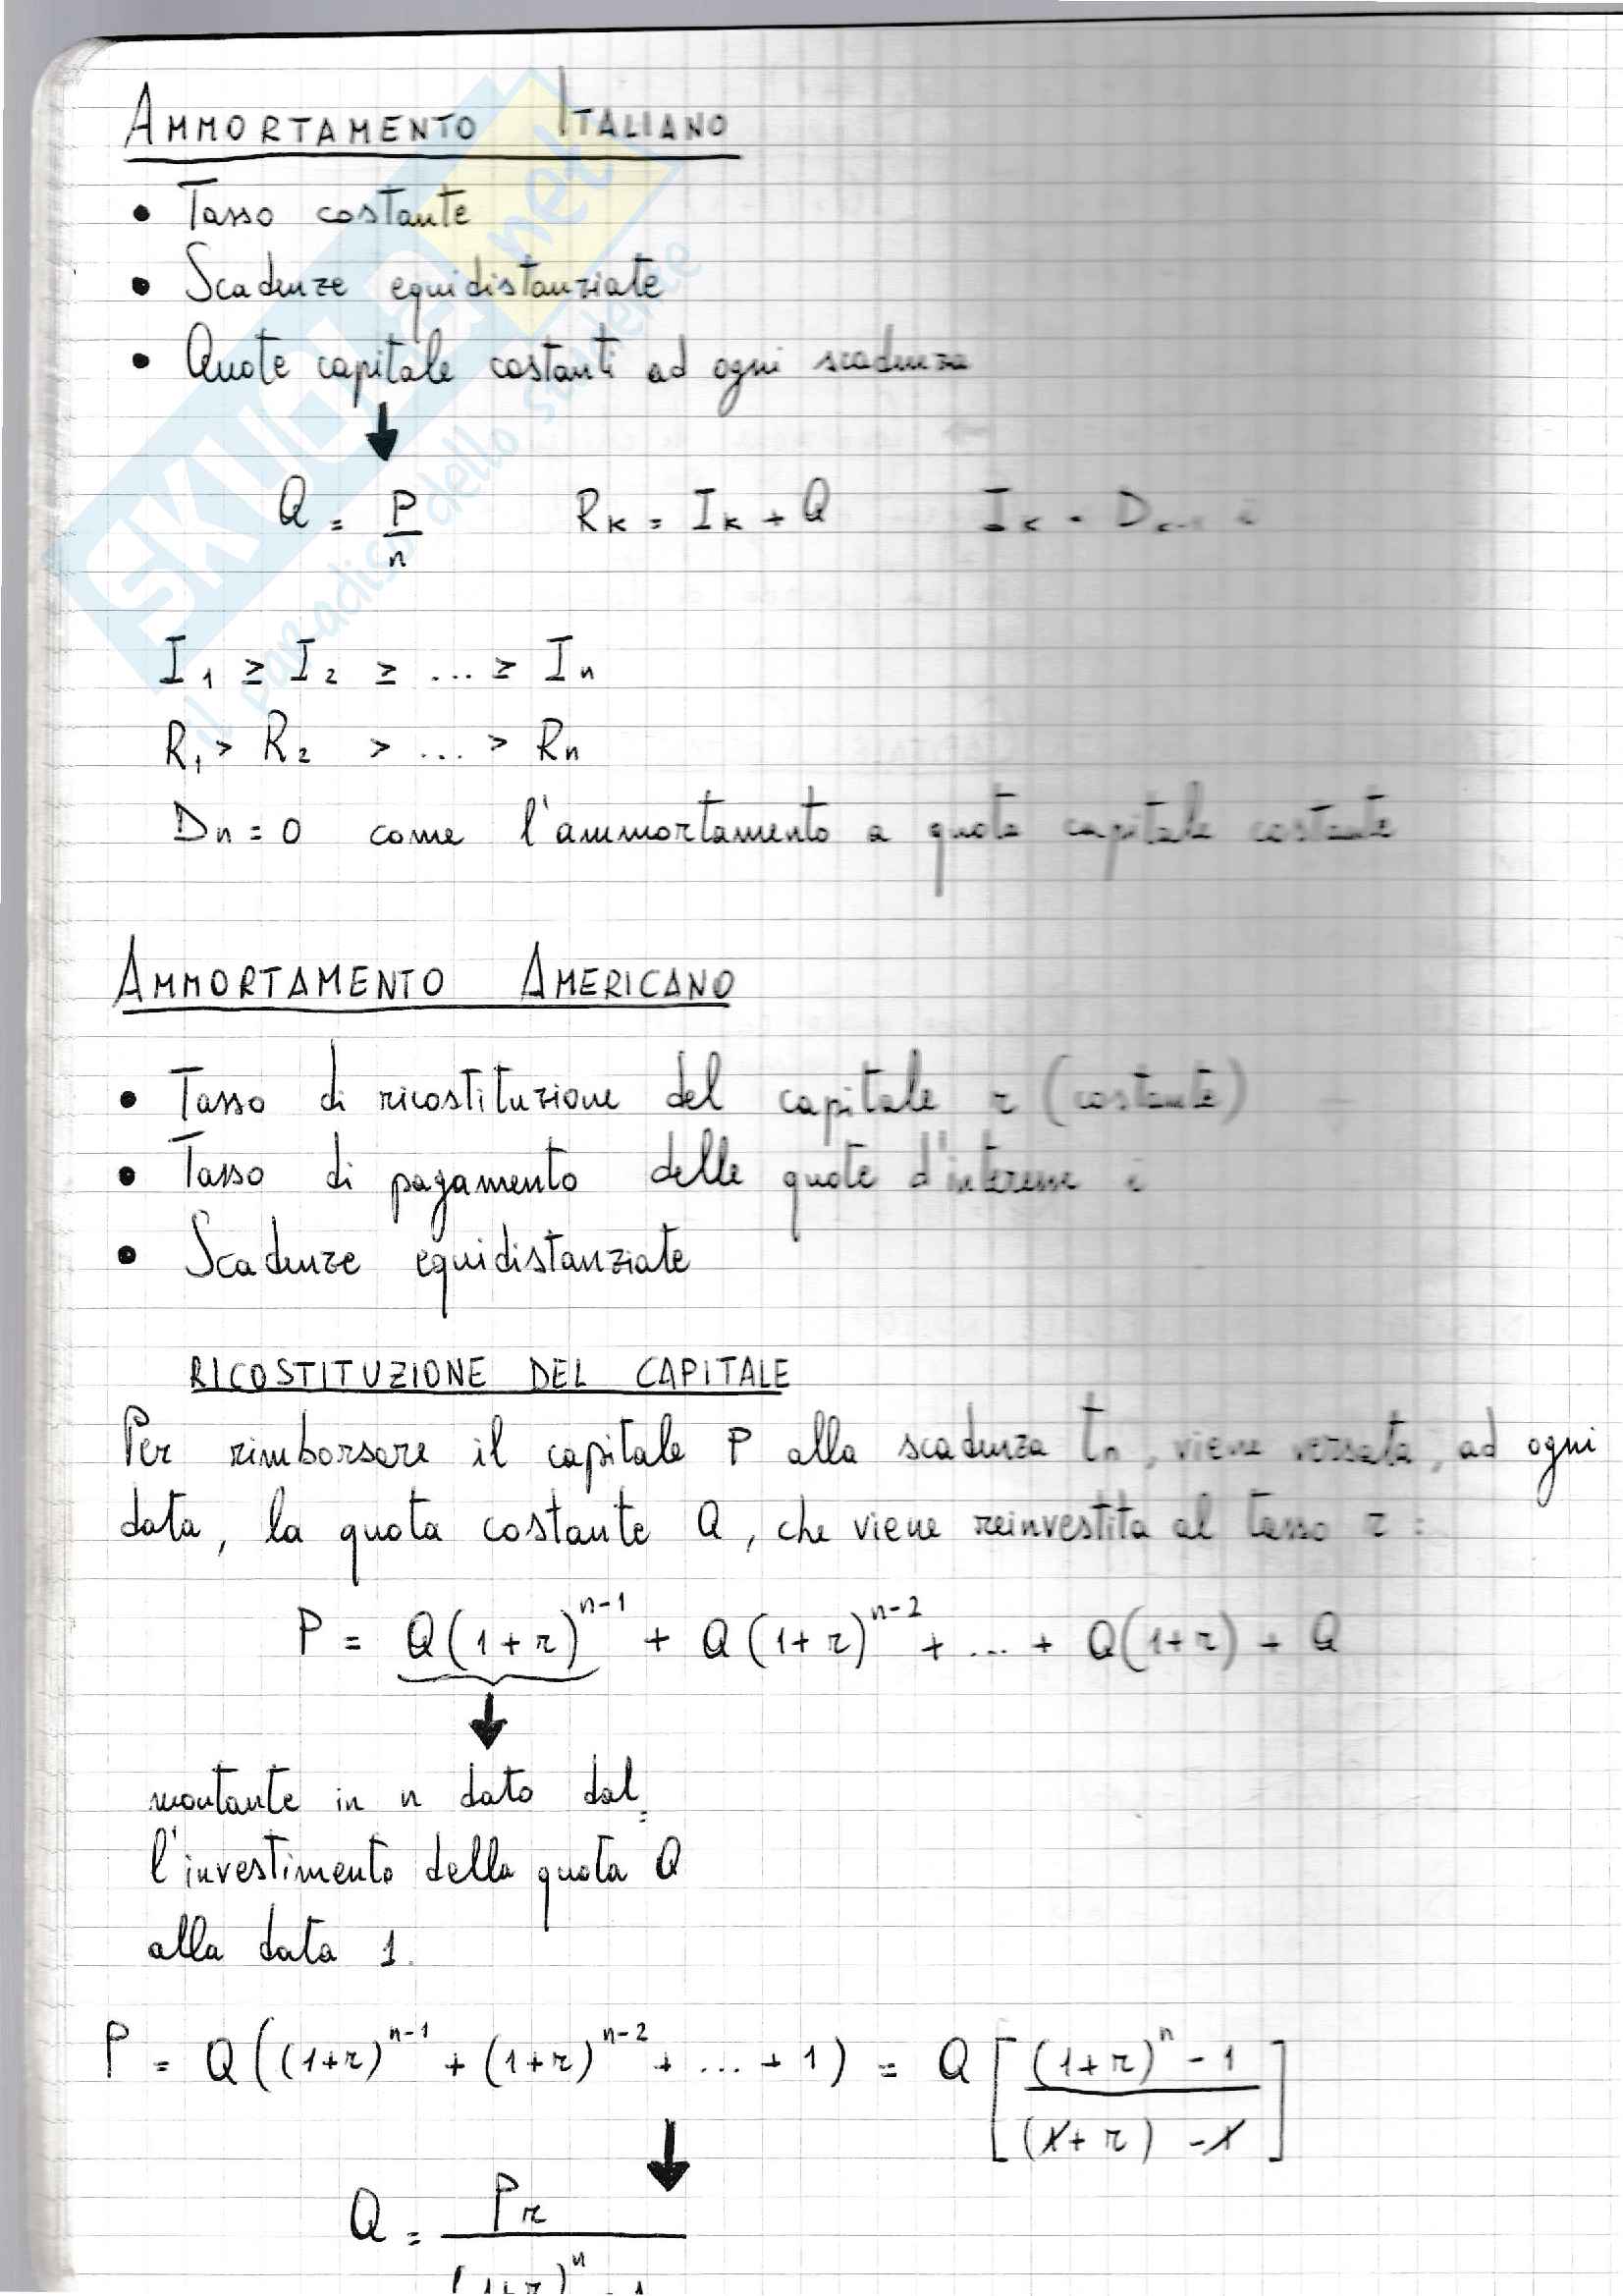 AMMORTAMENTO ITALIANO
• Tasso costante
• Scadenze equidistanziate
• Quote capitale costanti ad ogni scadenza
Q = P/n    R_K = I_K + Q    I_K = D_{K-1} i
I_1 ≥ I_2 ≥ ... ≥ I_n
R_1 > R_2 > ... > R_n
D_n = 0 come l'ammortamento a quota capitale costante
AMMORTAMENTO AMERICANO
• Tasso di ricostituzione del capitale r (costante)
• Tasso di pagamento delle quote d'interesse i
• Scadenze equidistanziate
RICOSTITUZIONE DEL CAPITALE
Per rimborsare il capitale P alla scadenza t_n, viene versata, ad ogni
data, la quota costante Q, che viene reinvestita al tasso r:
P = Q(1+r)^{n-1} + Q(1+r)^{n-2} + ... + Q(1+r) + Q
montante in n dato dal=
l'investimento della quota Q
alla data 1.
P = Q((1+r)^{n-1} + (1+r)^{n-2} + ... + 1) = Q[((1+r)^n - 1)/((1+r) - 1)]
Q = Pr/((1+r)^n - 1)
SKUOLA.net
il paradiso dello studente